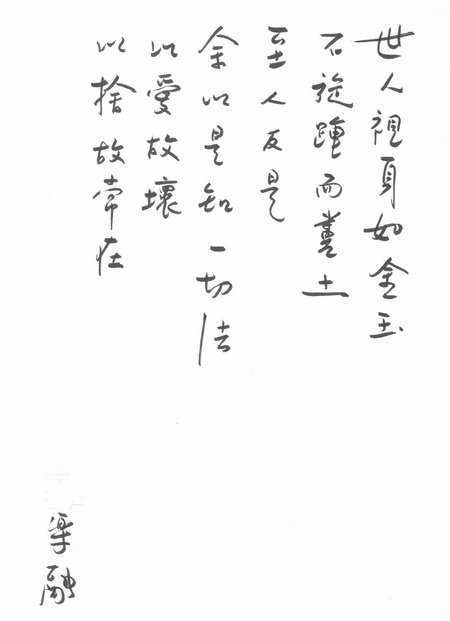 世人視身如金玉
不旋踵而糞土
至人反是
余以是知一切法
以愛故壞
以捨故常在
融